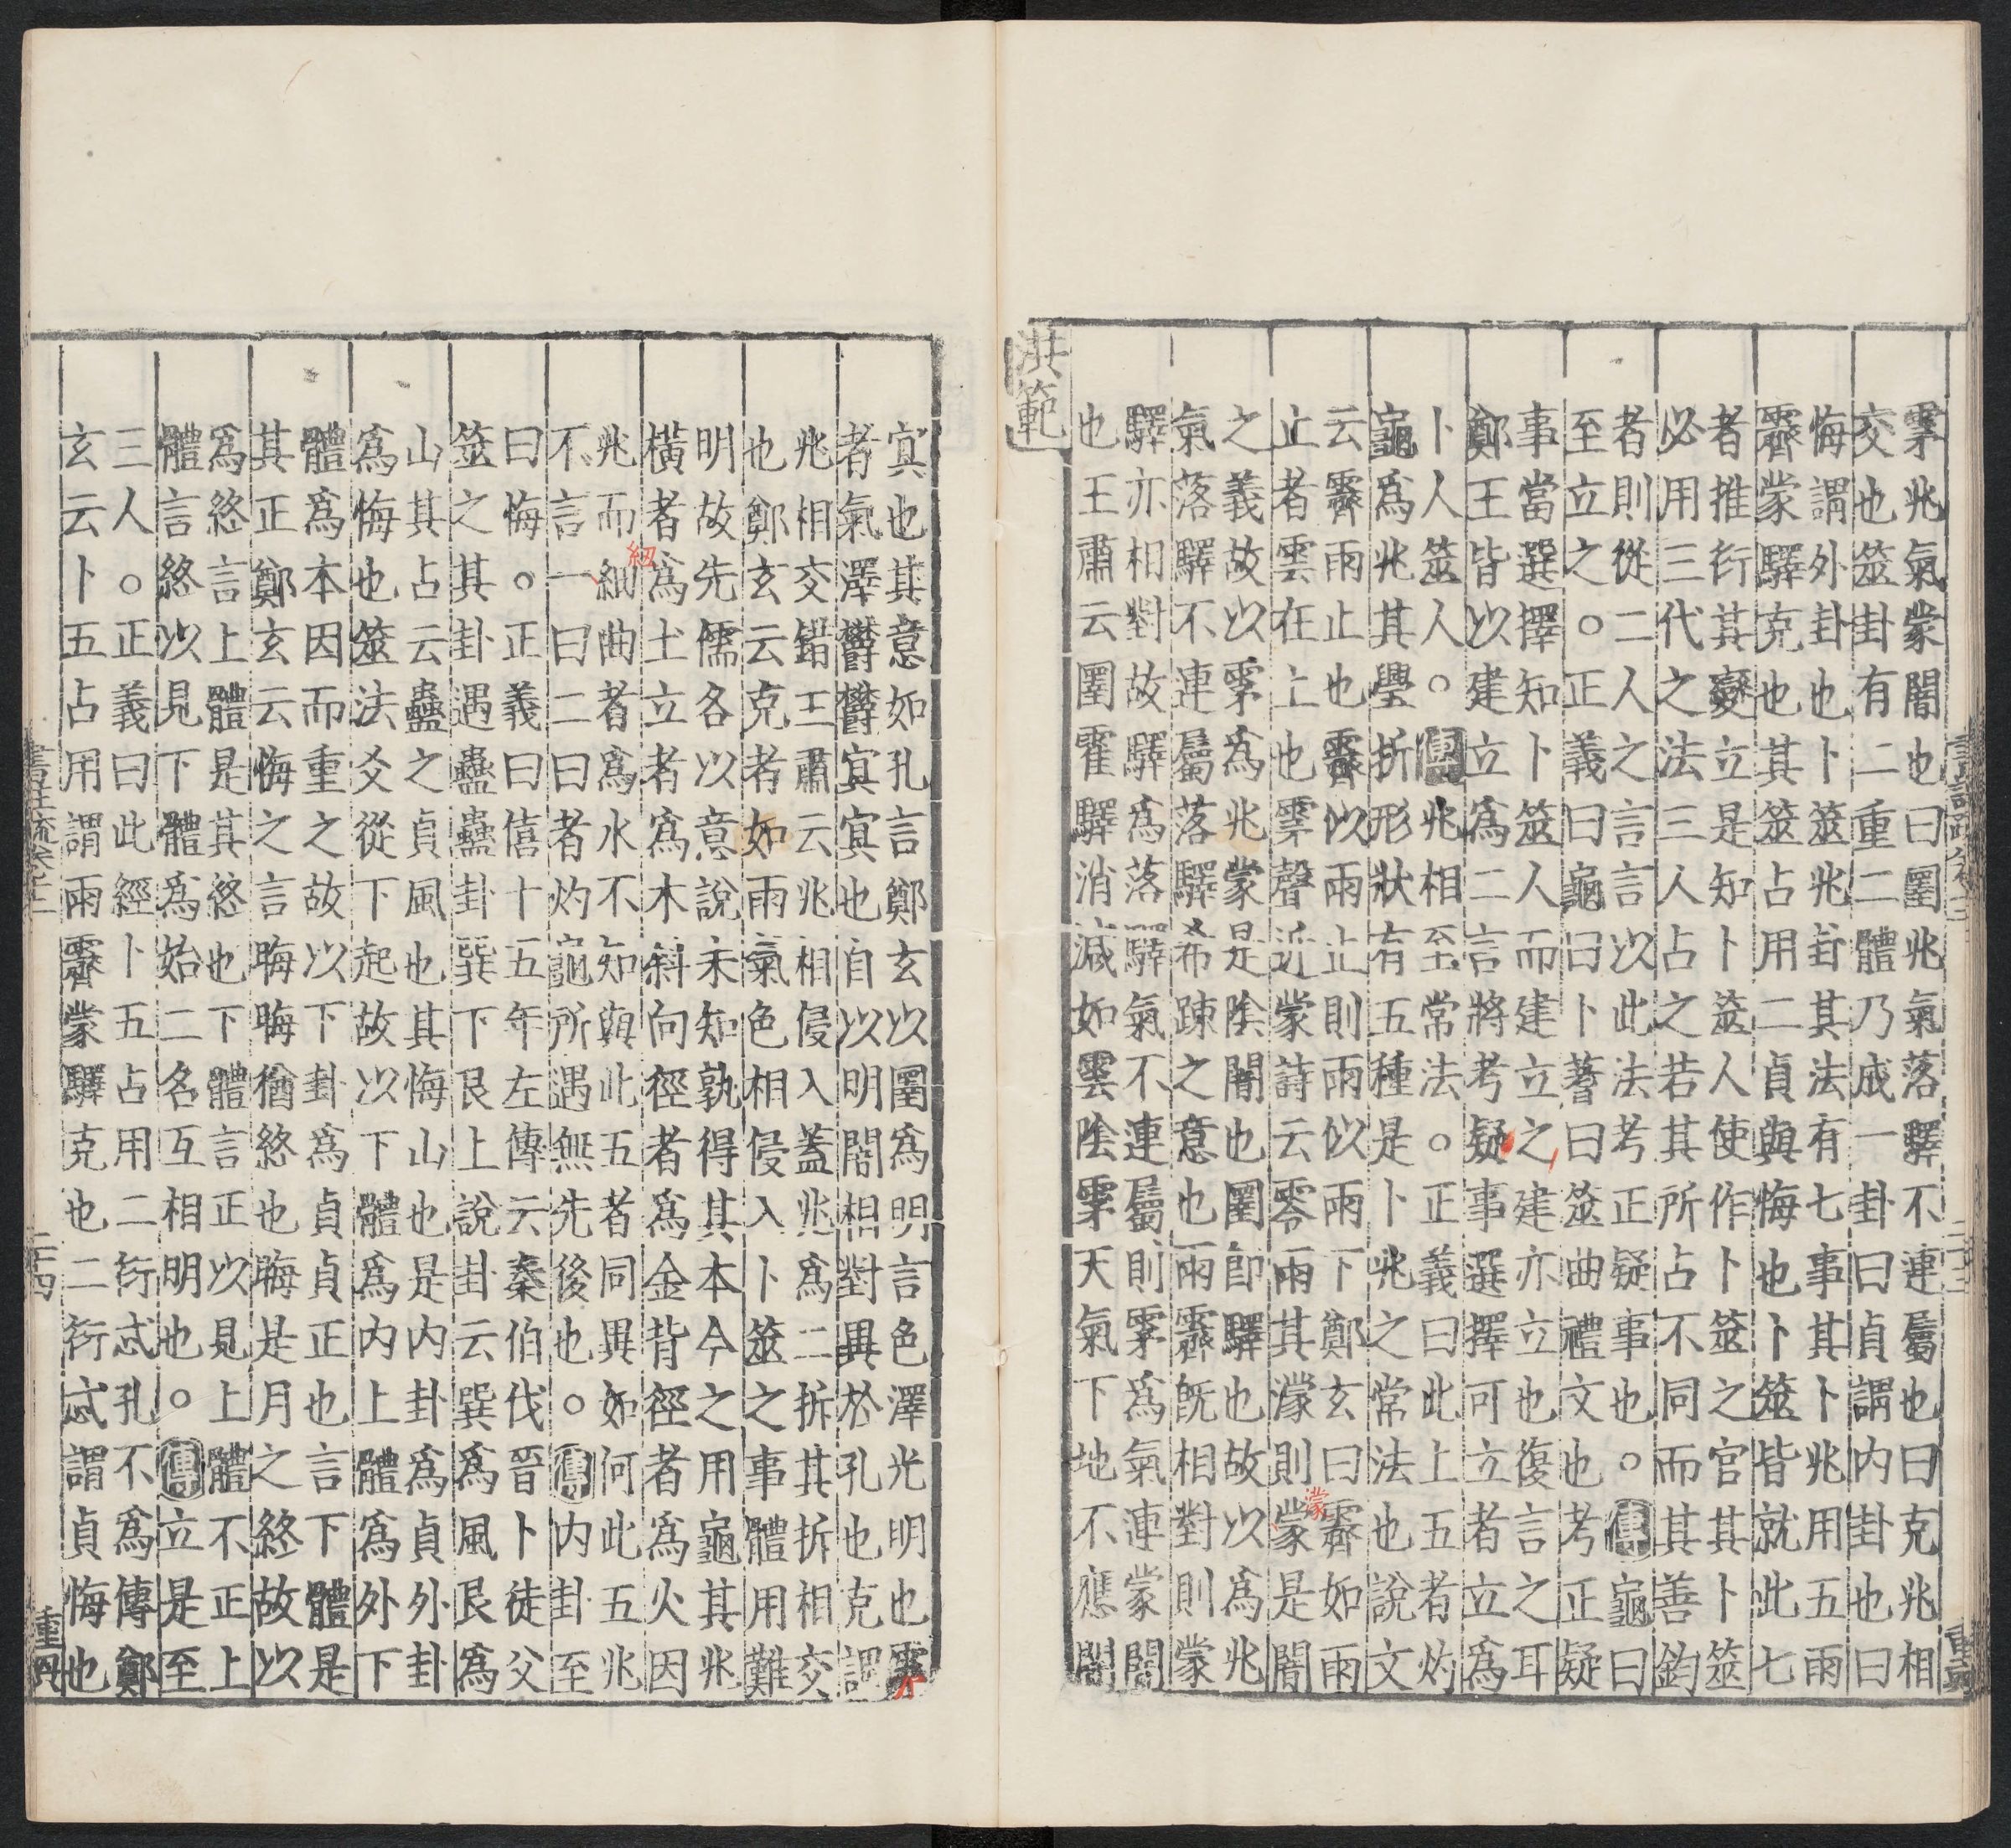 雺兆氣蒙闇也曰圛兆氣落驛不連屬也曰克兆相
交也筮卦有二重二體乃成一卦曰貞謂内卦也曰
悔謂外卦也卜筮兆卦其法有七事其卜兆用五雨
霽蒙驛克也其筮占用二貞與悔也卜筮皆就此七
者推衍其變立是知卜筮人使作卜筮之官其卜筮
必用三代之法三人占之若其所占不同而其善鈞
者則從二人之言言以此法考正疑事也○傳龜曰
至立之○正義曰龜曰卜蓍曰筮曲禮文也考正疑
事當選擇知卜筮人而建立之建亦立也復言之耳
鄭王皆以建立爲二言將考疑事選擇可立者立爲
卜人筮人○傳兆相至常法○正義曰此上五者灼
龜爲兆其舋折形狀有五種是卜兆之常法也說文
云霽雨止也霽似雨止則雨似雨下鄭玄曰霽如雨
止者雲在上也雺聲近蒙詩云零雨其濛則蒙是闇
濛
之義故以雺爲兆蒙是陰闇也圛即驛也故以爲兆
氣落驛不連屬落驛希疎之意也雨霽旣相對則蒙
驛亦相對故驛爲落驛氣不連屬則雺爲氣連蒙闇
也王肅云圛霍驛消減如雲陰雺天氣下地不應闇
洪範
寘也其意如孔言鄭玄以圛爲明言色澤光明也雺
者氣澤鬱鬱寘寘也自以明闇相對異於孔也克謂
兆相交錯王肅云兆相侵入蓋兆爲二拆其拆相交
也鄭玄云克者如雨氣色相侵入卜筮之事體用難
明故先儒各以意說未知孰得其本今之用龜其兆
橫者爲土立者爲木斜向徑者爲金背徑者爲火因
兆而細曲者爲水不知與此五者同異如何此五兆
紉
不言一曰二曰者灼龜所遇無先後也○傳内卦至
曰悔○正義曰僖十五年左傳云秦伯伐晉卜徒父
筮之其卦遇蠱蠱卦巽下艮上說卦云巽爲風艮爲
山其占云蠱之貞風也其悔山也是内卦爲貞外卦
爲悔也筮法爻從下起故以下體爲内上體爲外下
體爲本因而重之故以下卦爲貞貞正也言下體是
其正鄭玄云悔之言晦晦猶終也晦是月之終故以
爲終言上體是其終也下體言正以見上體不正上
體言終以見下體爲始二名互相明也○傳立是至
三人○正義曰此經卜五占用二衍忒孔不爲傳鄭
玄云卜五占用謂雨霽蒙驛克也二衍忒謂貞悔也
書註疏卷十二
二十四